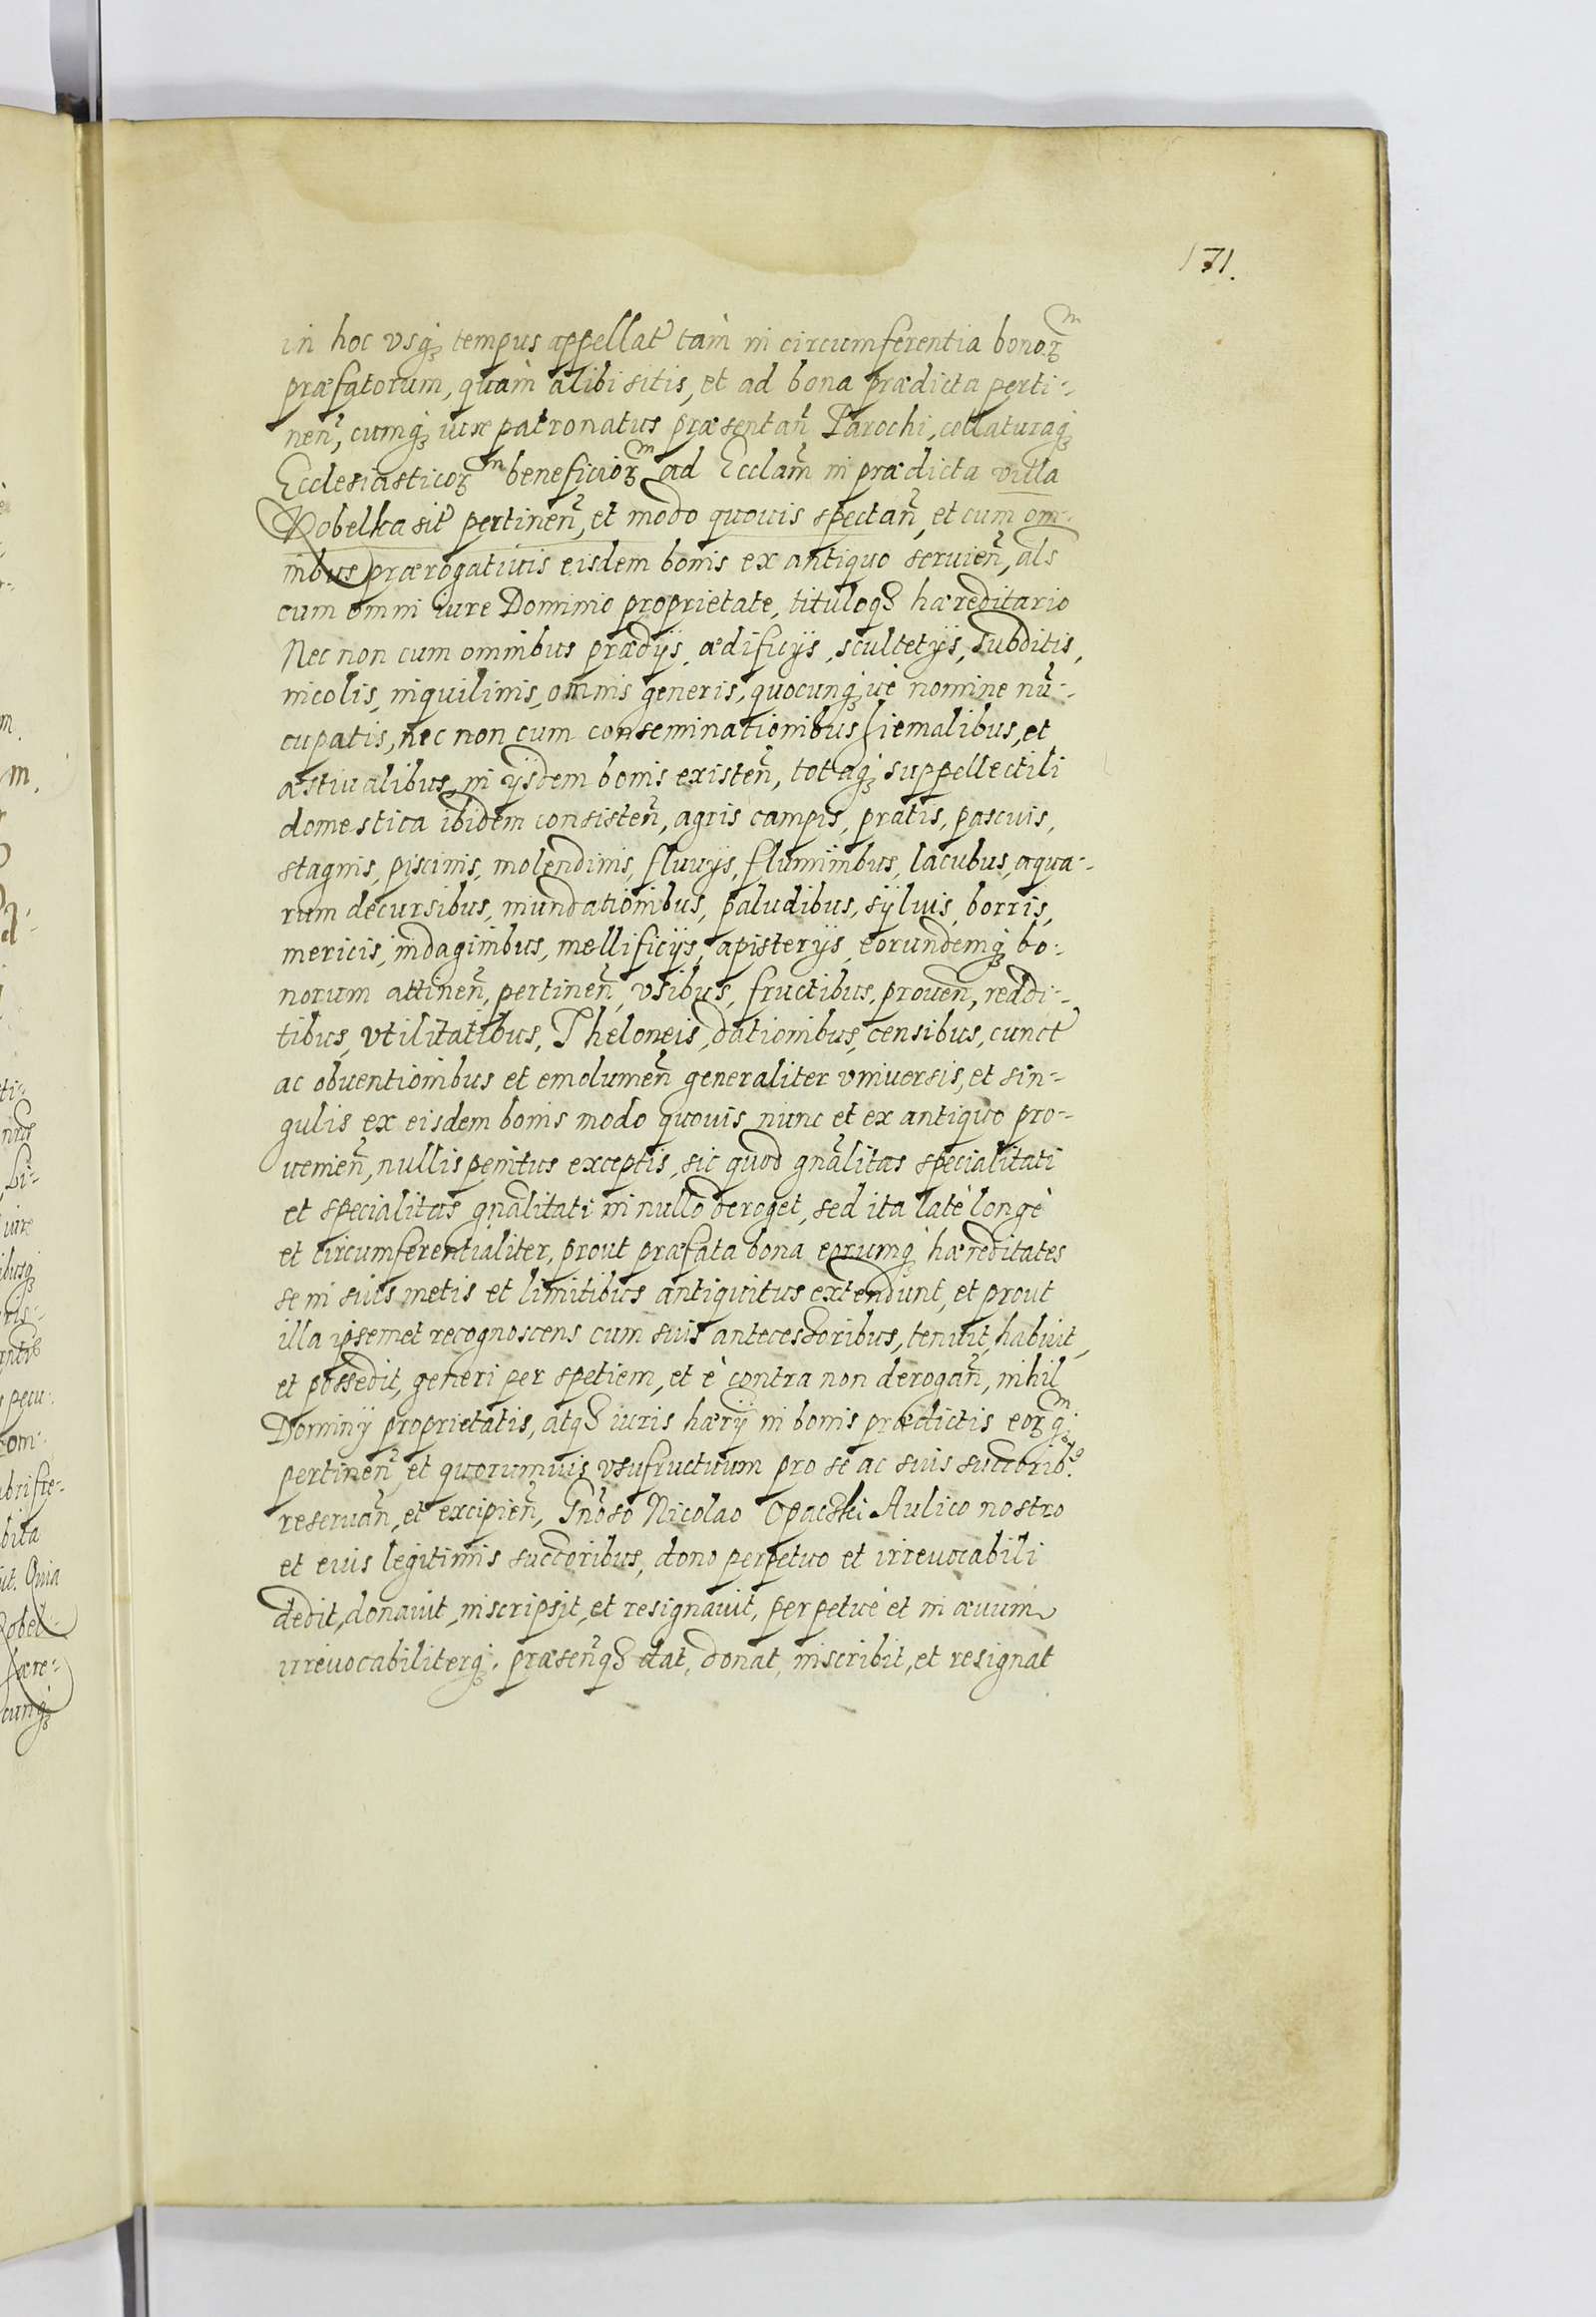 171.
in hoc vsq₃ tempus appellat̃ tàm in circumferentia bonor̃ᵐ
præfatorum, quàm alibi sitis, et ad bona prædicta perti-
neñ, cumq₃ iure patronatus præsentañ Parochi, collaturaq₃
Ecclesiasticor̃ᵐ beneficior̃ᵐ ad Ecclam̃ in prædicta villa
Kobelka sit̃ pertineñ, et modo quouis spectañ, et cum om-
nibus prærogatiuis eisdem bonis ex antiquo seruieñ, als
cum omni iure Dominio proprietate, tituloq₃ hæreditario
Nec non cum omnibus prædijs, ædificijs, scultetijs, subditis,
incolis, inquilinis, omnis generis, quocunq₃ uè nomine nũ-
cupatis, nec non cum conseminationibus hiemalibus, et
æstiualibus, in ijsdem bonis existeñ, totaq₃ suppellectili
domestica ibidem consisteñ, agris campis, pratis, pascuis,
stagnis, piscinis, molendinis, fluuijs, fluminibus, lacubus, aqua-
rum decursibus, inundationibus, paludibus, syluis, borris,
mericis, indaginibus, mellificijs, apisterijs, eorundemq₃ bo-
norum attineñ, pertineñ, vsibus, fructibus, proueñ, reddi-
tibus, vtilitatibus, Theloneis, dationibus, censibus, cunct̃
ac obuentionibus et emolumeñ generaliter vniuersis, et sin-
gulis ex eisdem bonis modo quouis nunc et ex antiquo pro-
uenieñ, nullis penitus exceptis, sic quòd gñalitas specialitati
et specialitas gñalitati in nullo deroget, sed ita latè longè
et circumferentialiter, prout præfata bona eorumq₃ hæreditates
se in suis metis et limitibus antiquitus extendunt, et prout
illa ipsemet recognoscens cum suis antecessoribus, tenuit, habuit,
et possedit, generi per spetiem, et è contra non derogañ, nihil
Dominij proprietatis, atq₃ iuris hærij in bonis prædictis eor̃ᵐq₃
pertineñ et quorumuis vsufructuum pro se ac suis succorib₉
reseruañ, et excipieñ, Gñoso Nicolao Opacski Aulico nostro
et eius legitimis succoribus, dono perpetuo et irreuocabili
dedit, donauit, inscripsit, et resignauit, perpetuè et in æuum
irreuocabiliterq₃. præseñq₃ dat, donat, inscribit, et resignat